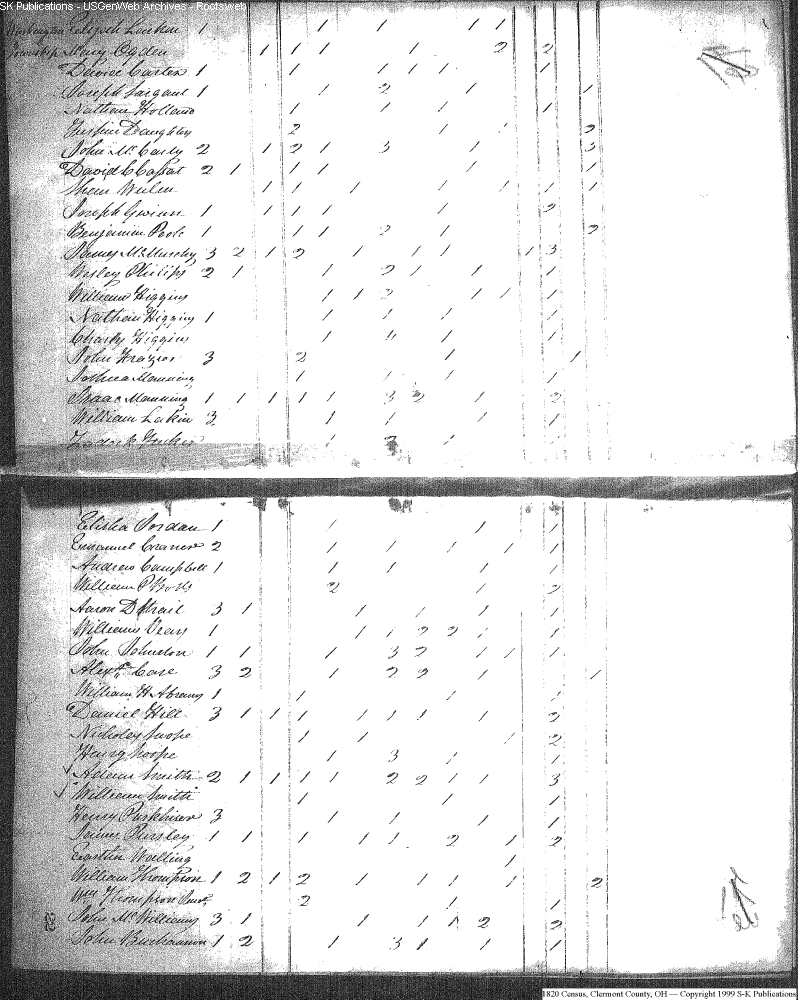 SK Publications - USGenWeb Archives - Rootsweb
Washington 1 1 1 1 1
Township Mary Ogden 1 1 1 1 2 2
Daniel Carter 1 1 1 1 1 1
Joseph Sargant 1 1 2 1 1
Nathan Holland 1 1 1 1
Daughtey 2 1 1 2
John McCarty 2 1 2 1 3 1 3
David C 2 1 1 1 1
1 1 1 1 1 1 1
Joseph Gwinn 1 1 1 1 1 2
Benjamin Poole 1 1 1 2 1 2
James McMurchy 3 2 1 2 1 1 1 1 3
Wesley Philips 2 1 1 2 1 1 1
William Higgins 1 1 2 1 1 1
Nathan Higgins 1 1 1 1 1
Charly Higgins 1 4 1 1
John Frazier 3 2 1 1
Joshua Manning 1 1 1 1
Isaac Manning 1 1 1 1 1 3 2 1 2
William Larkin 3 1 1 1 1
1 3 1
Elisha Jordan 1 1 1 1
Emanuel Cramer 2 1 1 1 1 1
Andrew Campbell 1 1 1 1 1
William P 2 1 2
Aaron D 3 1 1 1 1 1
William 1 1 1 2 2 1 1
John Johnston 1 1 1 3 2 1 1 1
Alexr Case 3 2 1 2 2 1 1
William H Abrams 1 1 1 1
Daniel Hill 3 1 1 1 1 1 1 1 2
Nicholas Swope 1 1 1 2
Henry Swope 1 3 1 1
Adam Smith 2 1 1 1 1 2 2 1 1 3
William Smith 1 1 1
Henry Parkhiser 3 1 1 1 1
James Pursley 1 1 1 1 1 2 1 2
Walling 1
William Thompson 1 2 1 2 1 1 1 1 2
Wm Thompson Senr 2 1 1
John McWilliams 3 1 1 1 1 2 2
John Buchannon 1 2 1 3 1 1 1
1820 Census, Clermont County, OH — Copyright 1999 S-K Publications